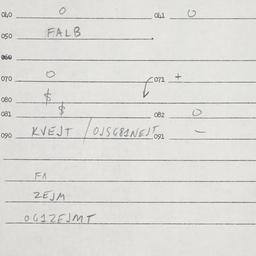 040 O 041 O
050 FALB
060
070 O 071 +
080 $
081 $ 082 O
090 KVEJT / OJSG81NEJT 091 –
FA
ZEJM
OG1ZEJMT